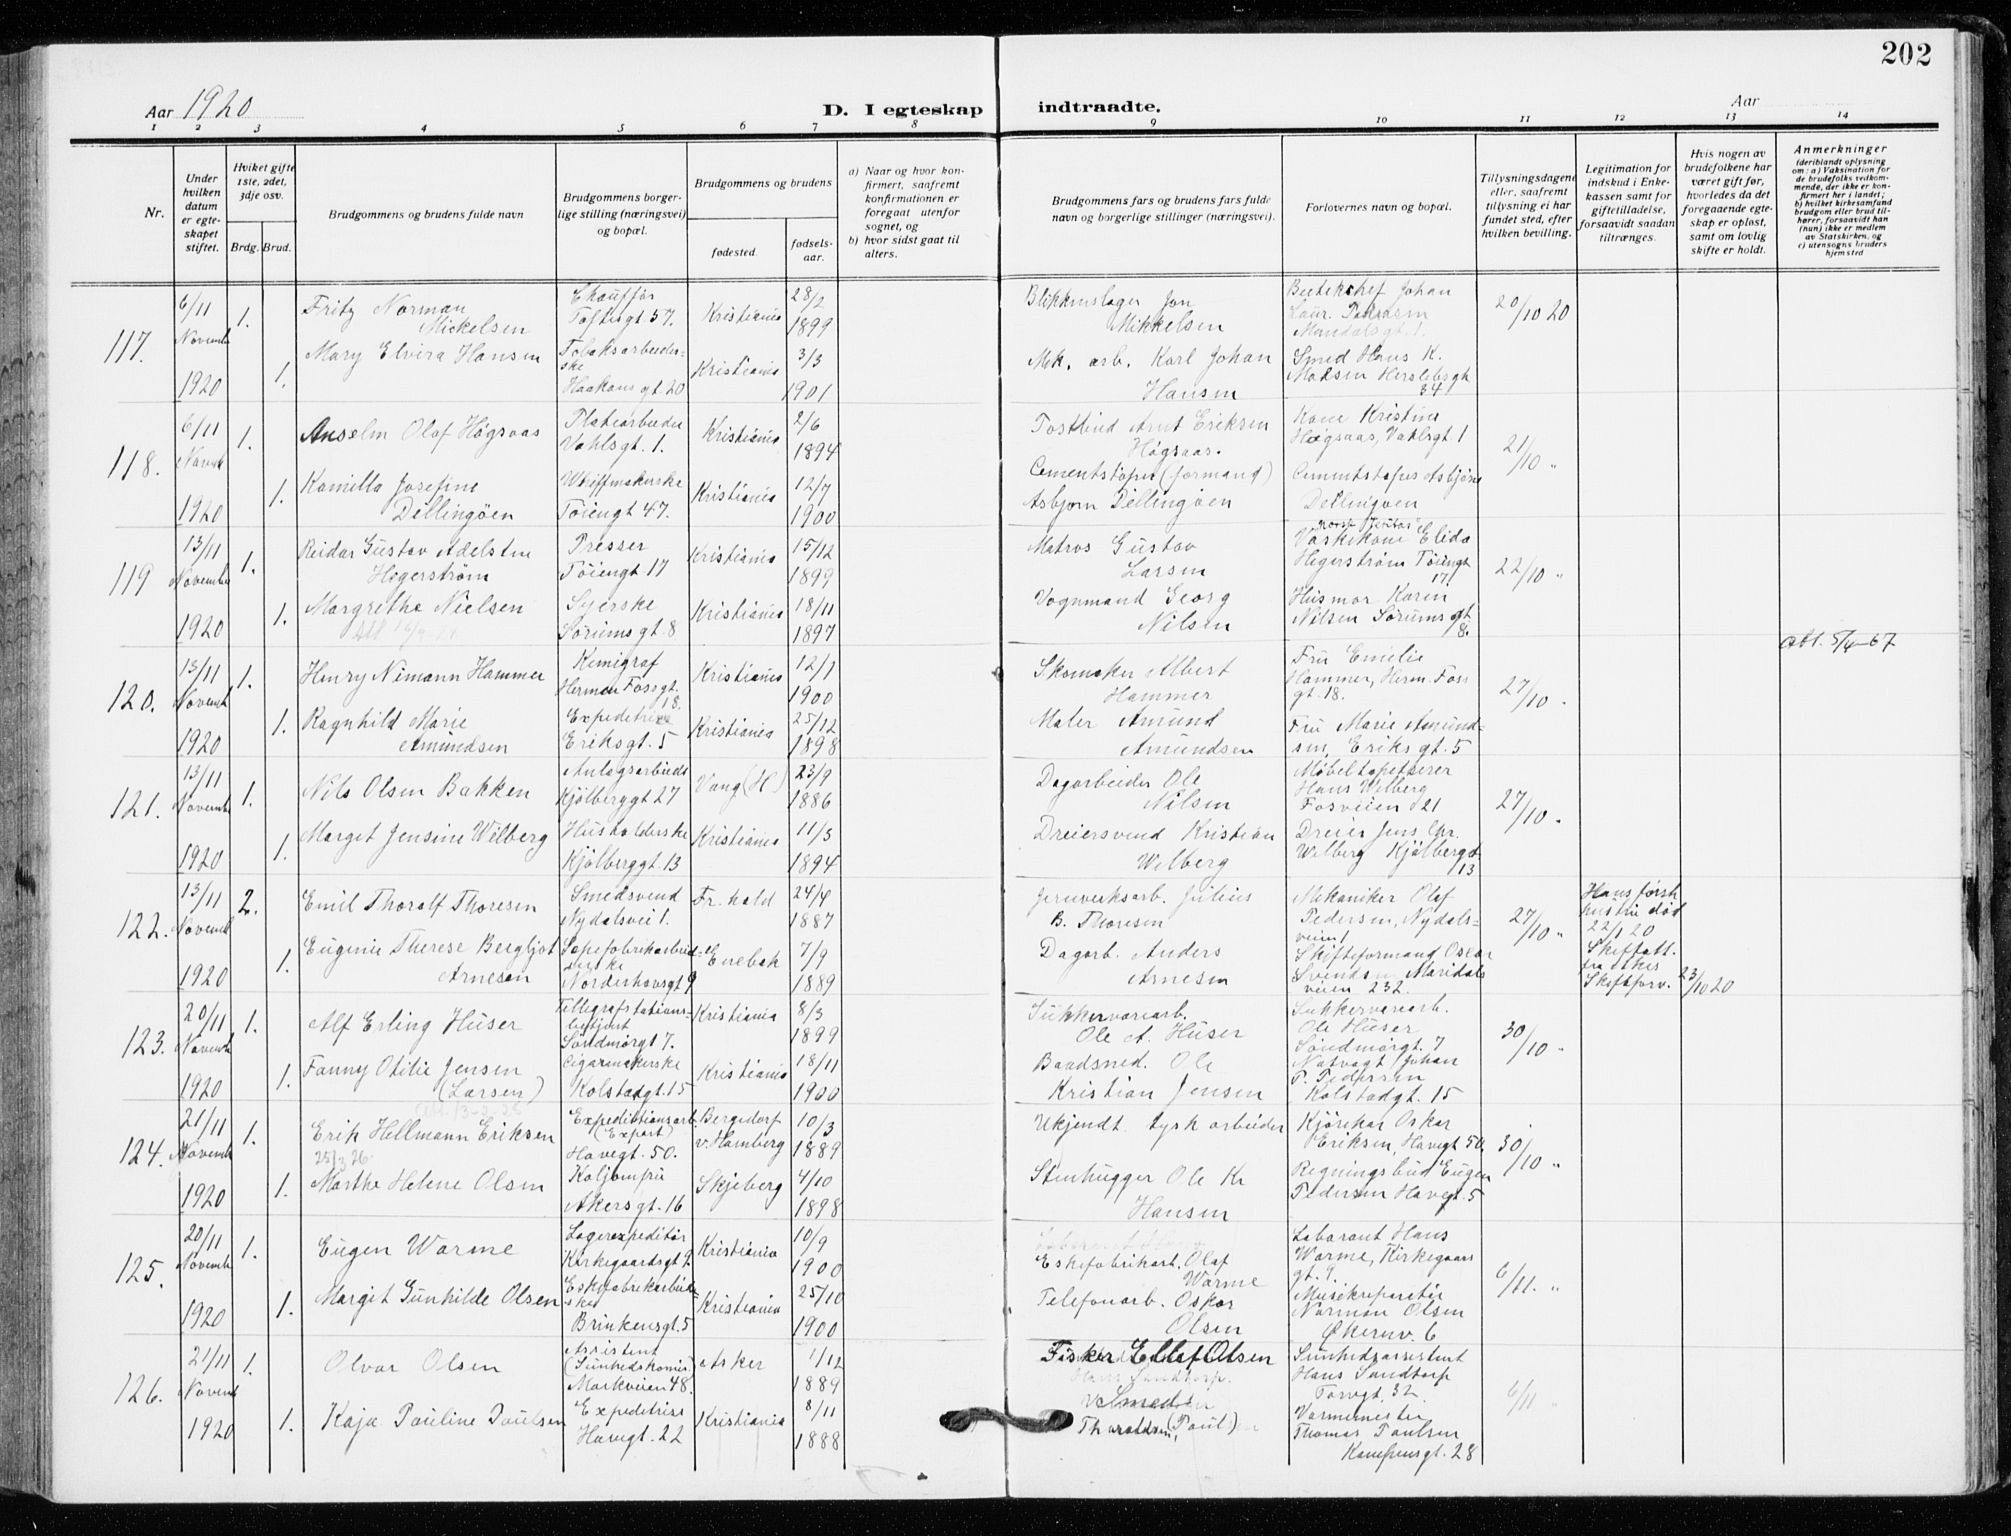 202
Aar 1920
D. I egteskap indtraadte.
Aar
1 2 3 4 5 6 7 8 9 10 11 12 13 14
Nr.
Under hvilken datum er egteskapet stiftet.
Hviket gifte 1ste, 2det, 3dje osv.
Brdg. Brud.
Brudgommens og brudens fulde navn
Brudgommens borgerlige stilling (næringsvei) og bopæl.
Brudgommens og brudens
fødested.
fødselsaar.
a) Naar og hvor konfirmert, saafremt konfirmationen er foregaat utenfor sognet, og
b) hvor sidst gaat til alters.
Brudgommens fars og brudens fars fulde navn og borgerlige stillinger (næringsvei).
Forlovernes navn og bopæl.
Tillysningsdagene eller, saafremt tillysning ei har fundet sted, efter hvilken bevilling.
Legitimation for indskud i Enkekassen samt for giftetilladelse, forsaavidt saadan tiltrænges.
Hvis nogen av brudefolkene har været gift før, hvorledes da det foregaaende egteskap er opløst, samt om lovlig skifte er holdt.
Anmerkninger
(deriblandt oplysning om: a) Vaksination for de brudefolks vedkommende, der ikke er konfirmert her i landet; b) hvilket kirkesamfund brudgom eller brud tilhører, forsaavidt han (hun) ikke er medlem av Statskirken, og c) utensogns bruders hjemsted
117.
6/11 Novemb 1920
1.
Fritz Norman Mickelsen
Chauffør Toftesgt 57.
Kristiania
28/2 1899
Blikkenslager Jon Mikkelsen
Johan Laur. Pedersen Mandalsgt. 1.
20/10 20
1.
Mary Elvira Hansen
Tobaksarbeiderske Haakons gt. 20
Kristiania
3/3 1901
Mek. arb. Karl Johan Hansen
Smed Hans K. Madsen Herslebsgt 34
118.
6/11 Novemb 1920
1.
Anselm Olaf Høgsaas
Platearbeider Vahlsgt. 1.
Kristiania
2/6 1894
Arnt Eriksen Høgsaas.
Kone Kristine Høgsaas, Vahlsgt. 1
21/10 "
1.
Kamilla Josefine Dillingöen
Töiengt 47.
Kristiania
12/7 1900
Cementstöper (formand) Asbjørn Dillingöen
Cementstøper Asbjørn Dillingöen
119
13/11 November 1920
1.
Reidar Gustav Adelsten Hegerström
Presser Töiengt 17
Kristiania
15/12 1899
Matros Gustav Larsen
Vaskekone Elida Hegerström Töiengt 17.
22/10 "
1.
Margrethe Nielsen
Syerske Sörumsgt. 8
Kristiania
18/11 1897
Vognmand Georg Nilsen
Husmor Karen Nilsen Sörumsgt. 8.
att. 5/4-67
120.
13/11 Novemb 1920
1.
Henry Nimann Hammer
Kemigraf Herman Fossgt. 18.
Kristiania
12/1 1900
Skomaker Albert Hammer
Fru Emelie Hammer, Herm. Foss gt. 18.
27/10 "
1.
Ragnhild Marie Amundsen
Expeditrise Eriksgt. 5
Kristiania
25/12 1898
Maler Amund Amundsen
Fru Marie Amundsen, Eriksgt. 5
121.
13/11 Novemb 1920
1.
Nils Olsen Bakken
Anlægsarbeider Kjølberggt 27
Vang (H)
23/9 1886
Dagarbeider Ole Nilsen
Møbeltapetserer Hans Wilberg Fosveien 21
27/10 "
1.
Marget Jensine Wilberg
Husholderske Kjølberggt. 13
Kristiania
11/3 1894
Dreiersvend Kristian Wilberg
Dreier Jens Chr. Wilberg Kjølberggt 13
122.
13/11 Novemb 1920
2.
Emil Thoralf Thoresen
Smedsvend Nydalsvei 1.
Fr. hald
24/4 1887
Jernverksarb. Julius B. Thoresen
Mekaniker Olaf Pedersen, Nydalsveien 1
27/10 "
Hans første hustru død 22/1 20 Skifteatt. fra Akers Skifteforv. 23/10 20
1.
Eugenie Therese Bergljot Arnesen
Sæpefabrikarbeiderske Norderhovsgt 9
Enebak
7/9 1889
Dagarb. Anders Arnesen
Skifteformand Oscar Svendsen Maridalsveien 232.
123.
20/11 Novemb 1920
1.
Alf Erling Huser
Tellegrafstationsbetjent Söndmørgt 7.
Kristiania
8/3 1899
Sukkervarearb. Ole A. Huser
Sukkervarearb. Ole Huser Söndmørgt. 7
30/10 "
1.
Fanny Otilie Jensen (Larsen)
Cigarmakerske Kolstadgt. 15
Kristiania
18/11 1900
Baadsmed. Ole Kristian Jensen
Natvagt Johan P. Pedersen Kolstadgt. 15
124.
21/11 Novemb 1920
1.
Erik Hellmann Eriksen
25/3 26.
Expeditionsarb. (Export) Havegt. 50.
Bergedorf v. Hamberg
10/3 1889
Ukjendt tysk arbeider
Kjørekar Oskar Eriksen, Havegt 50.
30/10 "
1.
Marthe Helene Olsen
Koljomfru Akersgt. 16
Skjeberg
4/10 1898
Stenhugger Ole Kr Hansen
Regningsbud Eugen Pedersen Havegt. 5
125.
20/11 Novemb 1920
1.
Eugen Warme
Lagerexpeditör Kirkegaardsgt 9.
Kristiania
10/9 1900
Eskefabrikarb. Olaf Warme
Laborant Hans Warme, Kirkegaardsgt. 9.
6/11. "
1.
Margit Gunhilde Olsen
Eskefabrikarbeiderske Brinkensgt. 5
Kristiania
25/10 1900
Telefonarb. Oskar Olsen
Musikreparatör Norman Olsen Økernv. 6
126.
21/11 Novemb 1920
1.
Olvar Olsen
Assistent (Sundhedskomis.) Markveien 48.
Asker
1/12 1889
Fisker Ellef Olsen
Sundhedsassistent Hans Sandtorp Torvgt. 32
6/11 "
1.
Kaja Pauline Paulsen
Expeditrise Havegt. 22
Kristiania
8/11 1888
Smed Thoraldsen, (Paul)
Varmemester Thomas Paulsen Kampensgt. 28